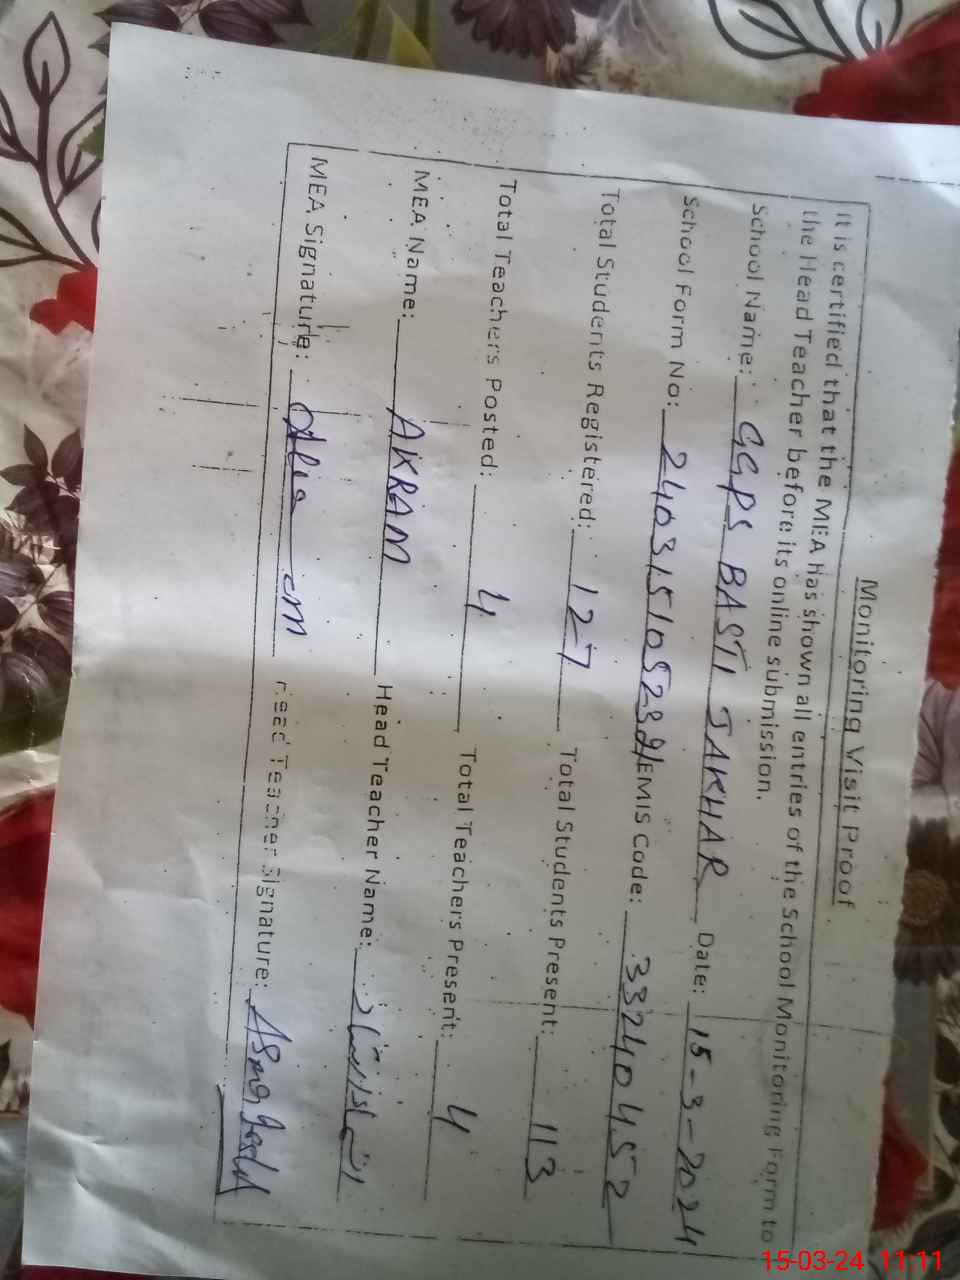 Monitoring Visit Proof
It is certified that the MEA has shown all entries of the School Monitoring Form to
the Head Teacher before its online submission.
School Name: GGPS BASTI JAKHAR Date: 15-3-2024
School Form No: EMIS Code: 33240452
Total Students Registered: 127 Total Students Present: 113
Total Teachers Posted: 4 Total Teachers Present: 4
MEA Name: AKRAM Head Teacher Name:
MEA Signature: Head Teacher Signature:
15-03-24 11:11